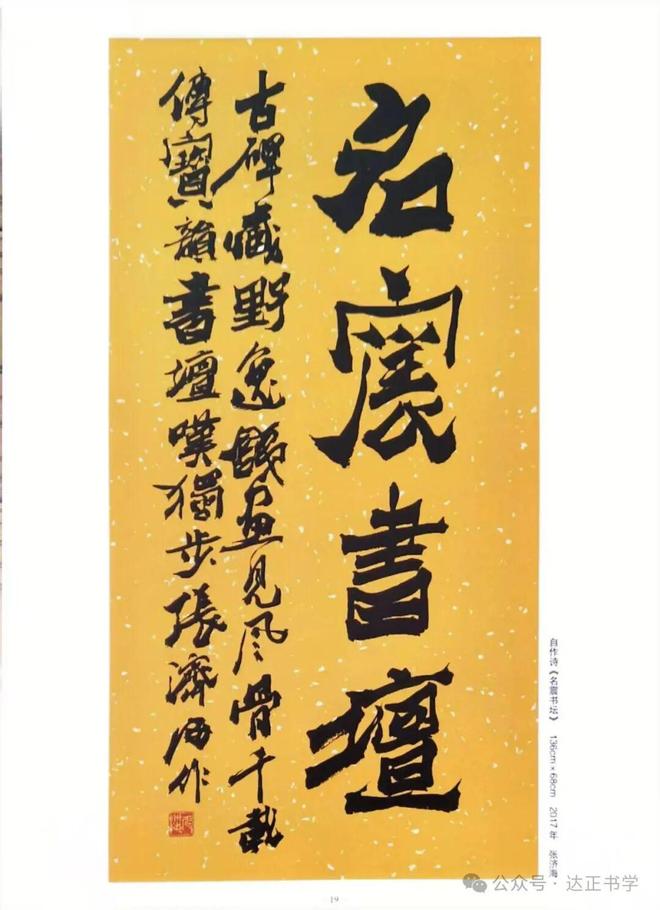 名震書壇
古碑藏野逸 餓畫見風骨 千載
傳寶韻 書壇嘆獨步 張濟海作
自作诗《名震书坛》 136cm×68cm 2017年 张济海
公众号·达正书学
19